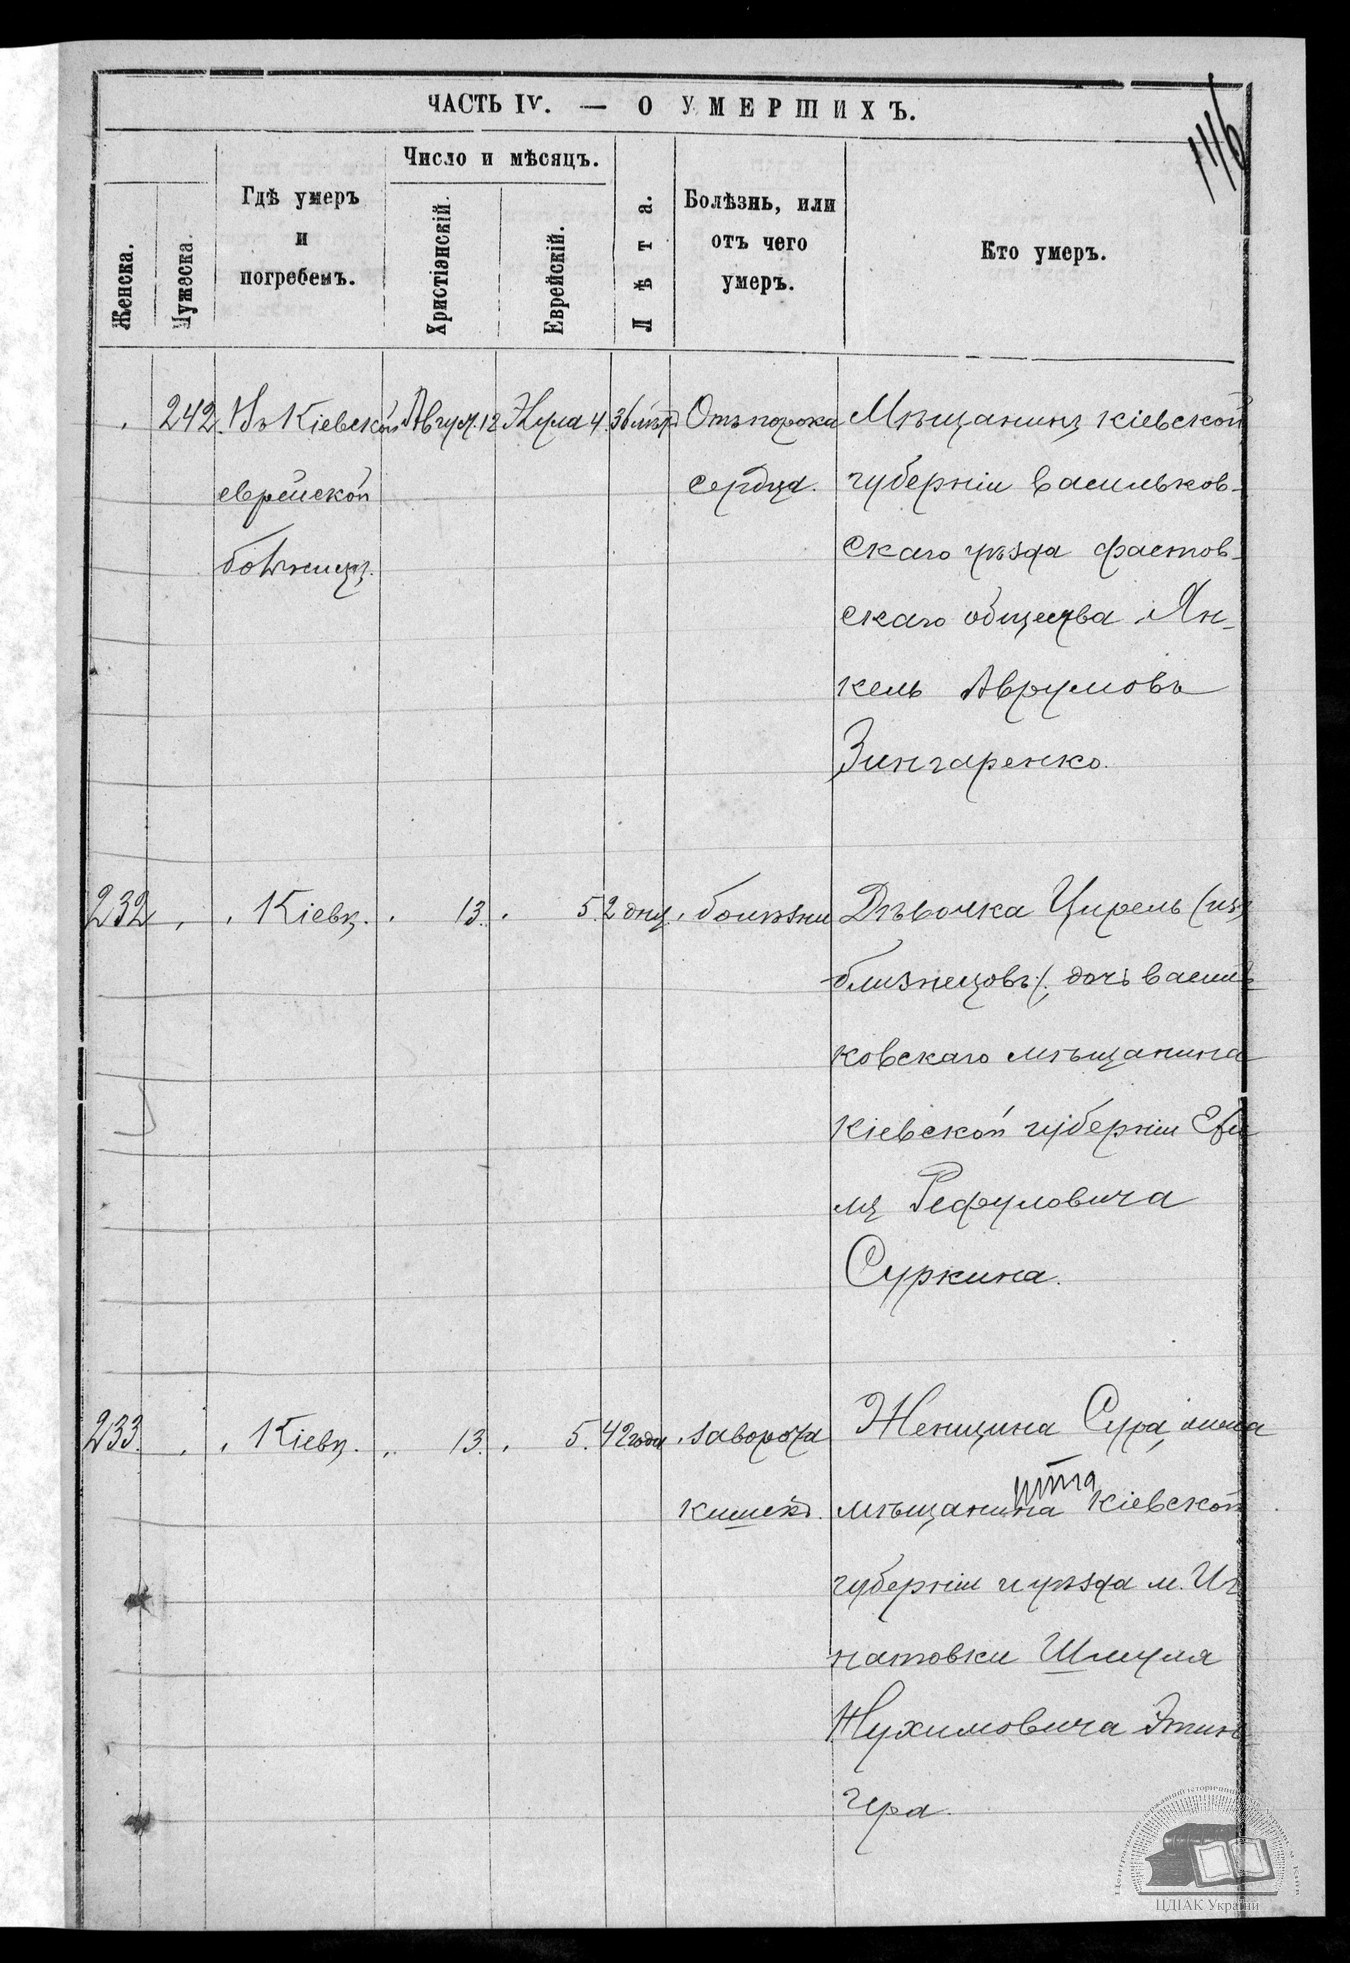 116
ЧАСТЬ IV. — О УМЕРШИХЪ.
Женска.
Мужеска.
Гдѣ умеръ
и
погребенъ.
Число и мѣсяцъ.
Христіанскій.
Еврейскій.
Лѣта.
Болѣзнь, или
отъ чего
умеръ.
Кто умеръ.
242. Въ Кіевской Август. 12 Элула 4. 36 лѣтъ Отъ порока Мѣщанинъ Кіевской
еврейской сердца. губерніи Васильков-
больницѣ. скаго уѣзда фастов-
скаго общества Ян-
кель Аврумовъ
Зингаренко.
232 Кіевъ. 13. 5. 2 дня. болѣзни Дѣвочка Цирель (изъ
близнецовъ), дочь Василь
ковскаго мѣщанина
Кіевской губерніи Ефи
мъ Рефуловича
Суркина.
233. Кіевъ. 13. 5. 42 года заворота Женщина Сура, жена
кишекъ. мѣщанина Кіевской
губерніи и уѣзда м. Иг
натовки Шмуля
Нухимовича Этин
гера.
ЦДІАК України